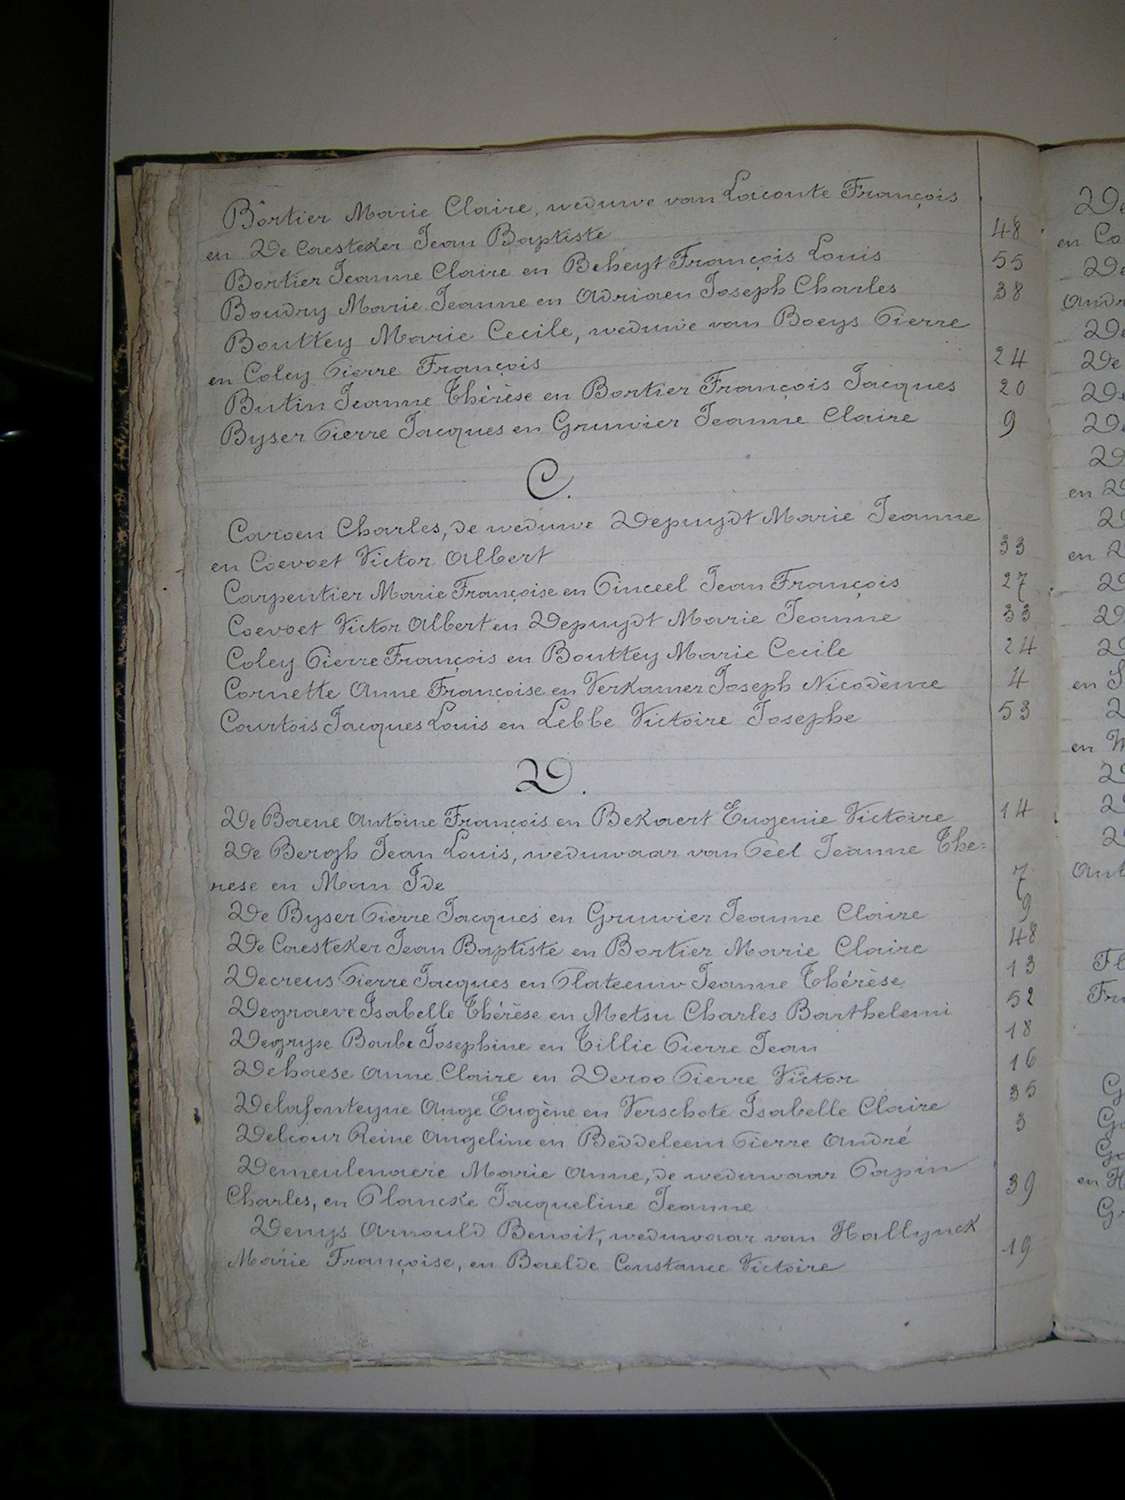 Bortier Marie Claire, weduwe van Laconte François
en De Caesteker Jean Baptiste 48
Bortier Jeanne Claire en Beheyt François Louis 55
Boudry Marie Jeanne en Adriaen Joseph Charles 38
Bouttey Marie Cecile, weduwe van Boeys Pierre
en Coley Pierre François 24
Butin Jeanne Thérèse en Bortier François Jacques 20
Byser Pierre Jacques en Gruwier Jeanne Claire 9
C.
Caroen Charles, de weduwe Depuydt Marie Jeanne
en Coevoet Victor Albert 33
Carpentier Marie Françoise en Pinceel Jean François 27
Coevoet Victor Albert en Depuydt Marie Jeanne 33
Coley Pierre François en Bouttey Marie Cecile 24
Cornette Anne Françoise en Verkamer Joseph Nicodème 4
Courtois Jacques Louis en Lebbe Victoire Josephe 53
D.
De Baene Antoine François en Bekaert Eugenie Victoire 14
De Bergh Jean Louis, weduwaar van Peel Jeanne The-
rese en Man Ide 7
De Byser Pierre Jacques en Gruwier Jeanne Claire 9
De Caesteker Jean Baptiste en Bortier Marie Claire 48
Decreus Pierre Jacques en Plateeuw Jeanne Thérèse 13
Degraeve Isabelle Thérèse en Metsu Charles Barthelemi 52
Degryse Barbe Josephine en Tillie Pierre Jean 18
Dehaese Anne Claire en Deroo Pierre Victor 16
Delafonteyne Ange Eugène en Verschote Isabelle Claire 35
Delcour Reine Angeline en Beddeleem Pierre André 3
Demeulenaere Marie Anne, de weduwaar Papin
Charles, en Plancke Jacqueline Jeanne 39
Denys Arnould Benoit, weduwaar van Hallynck
Marie Françoise, en Baelde Constance Victoire 19